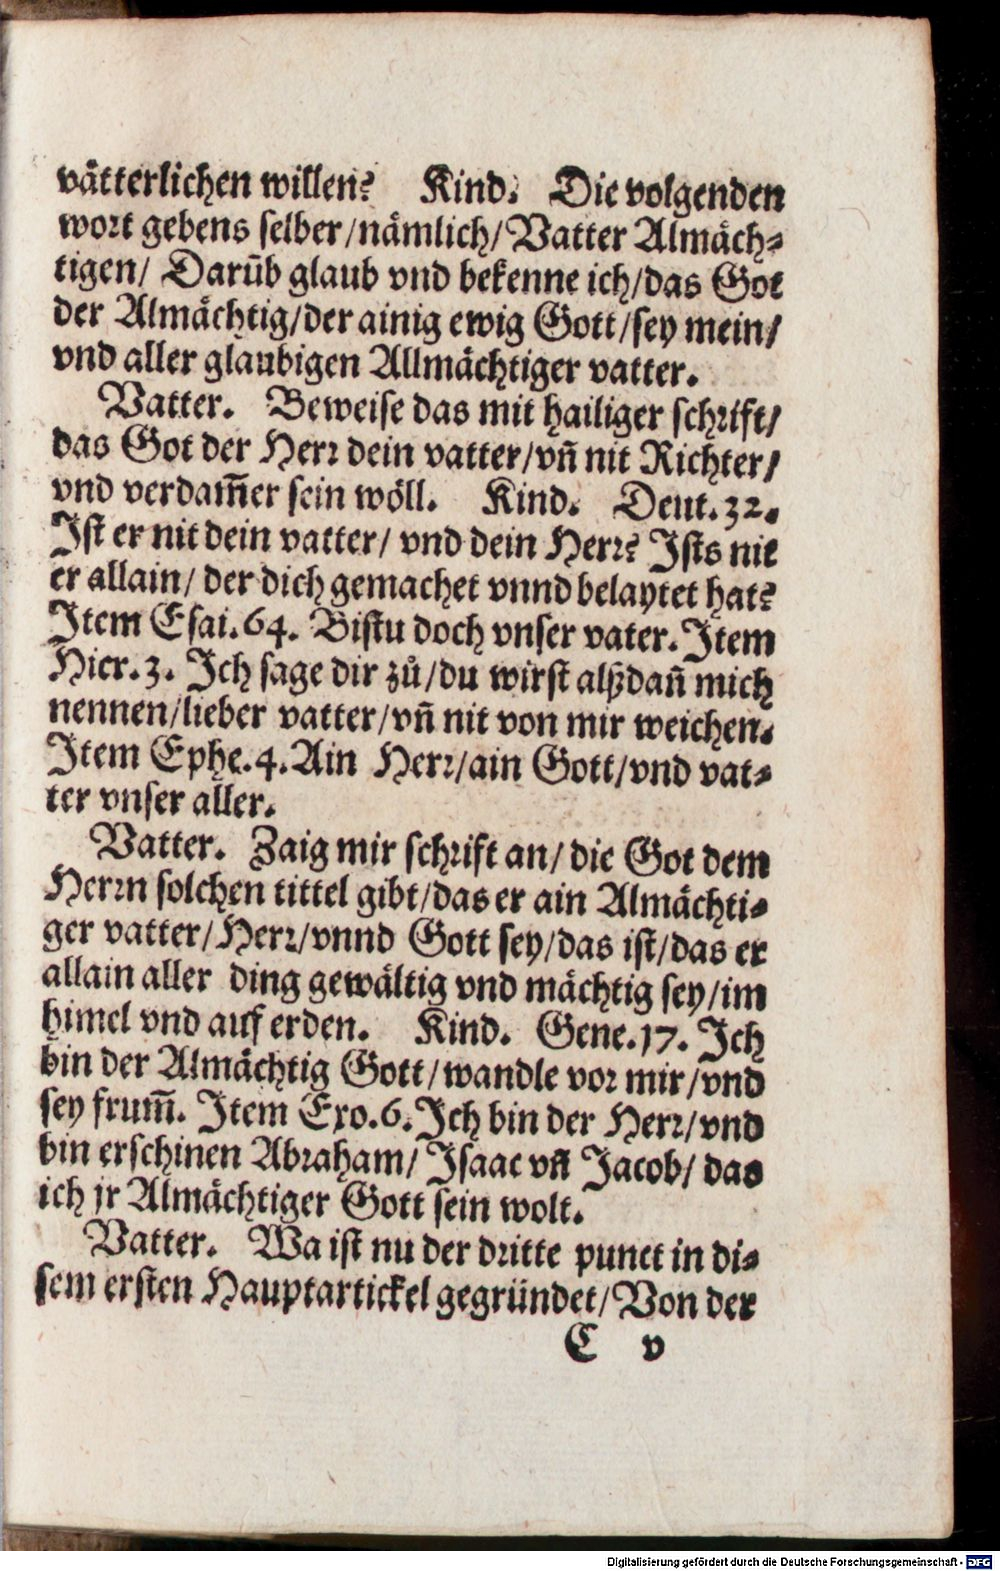 vätterlichen willen? Kind. Die volgenden
wort gebens selber/nämlich/Vatter Almäch-
tigen/ Darūb glaub vnd bekenne ich/das Got
der Almächtig/der ainig ewig Gott/sey mein/
vnd aller glaubigen Allmächtiger vatter.
Vatter. Beweise das mit hailiger schrift/
das Got der Herr dein vatter/vn̄ nit Richter/
vnd verdam̄er sein wöll. Kind. Deut. 32.
Ist er nit dein vatter/ vnd dein Herr? Ists nit
er allain/ der dich gemachet vnnd belaytet hat?
Item Esai. 64. Bistu doch vnser vater. Item
Hier. 3. Ich sage dir zů/du wirst alßdan̄ mich
nennen/lieber vatter/vn̄ nit von mir weichen.
Item Ephe. 4. Ain Herr/ain Gott/vnd vat-
ter vnser aller.
Vatter. Zaig mir schrift an/ die Got dem
Herrn solchen tittel gibt/das er ain Almächti-
ger vatter/Herr/vnnd Gott sey/das ist/das er
allain aller ding gewältig vnd mächtig sey/im
himel vnd auf erden. Kind. Gene. 17. Ich
bin der Almächtig Gott/wandle vor mir/vnd
sey frum̄. Item Exo. 6. Ich bin der Herr/vnd
bin erschinen Abraham/ Isaac vn̄ Jacob/ das
ich jr Almächtiger Gott sein wolt.
Vatter. Wa ist nu der dritte punct in di-
sem ersten Hauptartickel gegründet/Von der
C v
Digitalisierung gefördert durch die Deutsche Forschungsgemeinschaft - DFG